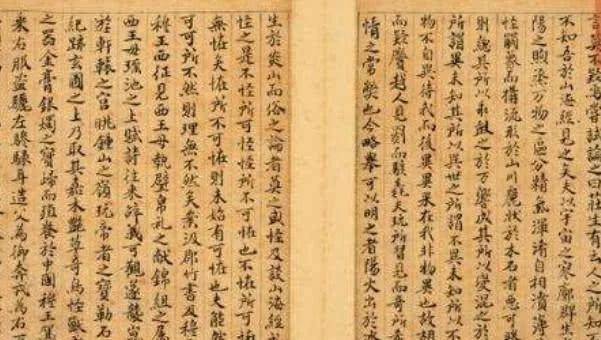 言莫不疑焉嘗試論之曰莊生有云人之所知
不知吾於山海經見之矣夫以宇宙之寥廓群生
陽之煦蒸万物之區分精氣渾淆自相濆薄
怪觸象而構流形於山川麗狀於木石者惡可勝
則總其所以乖鼓之於万響成其所以變混之於
所謂異未知其所以異世之所謂不異未知所以不
物不自異待我而後異異果在我非物異也故胡
而疑黂越人見罽而駭毳夫玩所習見而奇所希
情之常蔽也今略舉可以明之者陽火出於冰
生於炎山而俗之論者莫之或怪及談山海經
怪之是不怪所可怪怪所不可怪也不怪所可怪
無怪矣怪所不可怪則未始有可怪也夫能然
可可所不可然則理無不然矣案汲郡竹書及穆
穆王西征見西王母執璧帛之獻錦組之屬
西王母瑤池之上賦詩往來辭義可觀遂襲崑
於軒轅之宮眺鍾山之嶺玩帝者之寶勒石
紀跡玄圃之上乃取其嘉木艷草奇鳥怪獸
之器金膏銀燭之寶歸而殖養於中國穆王駕
乘右服盜驪左驂騄耳造父為御奔戎為右